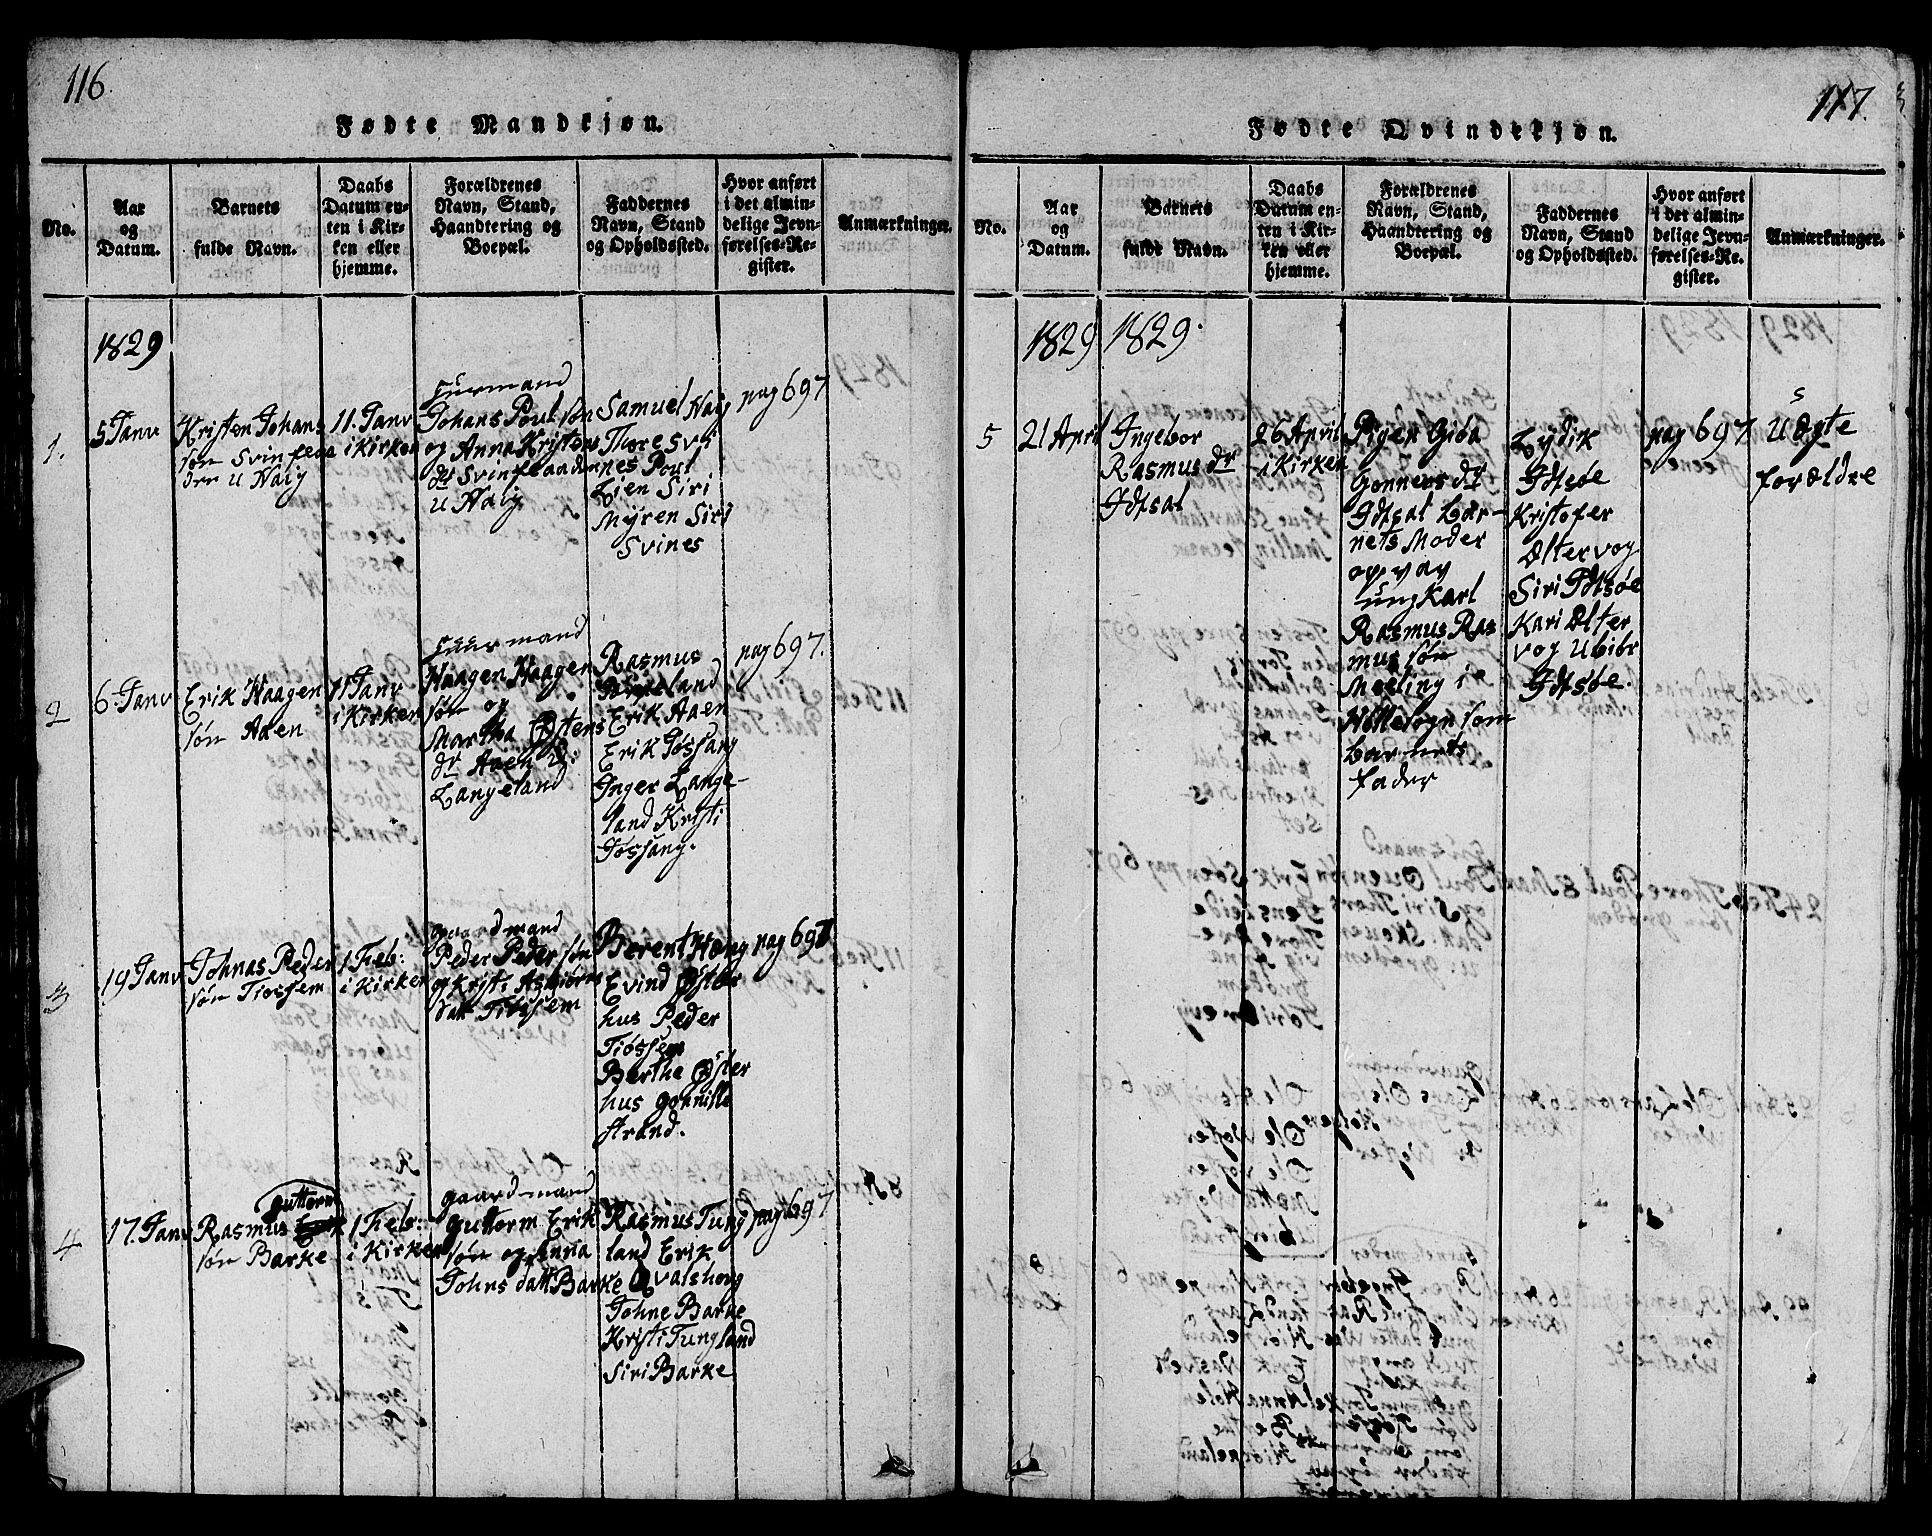 116
Fødte Mandkjøn.
No.
Aar
og
Datum.
Barnets
fulde Navn.
Daabs
Datum en-
ten i Kir-
ken eller
hjemme.
Forældrenes
Navn, Stand,
Haandtering og
Boepæl.
Faddernes
Navn, Stand
og Opholdssted.
Hvor anført
i det almin-
delige Jevn-
førelses-Re-
gister.
Anmærkninger.
1829
1.
5 Janv
Kristen Johans
søn Svinflaa
u Haly
11. Janv
i Kirken
Huusmand
Johans Poul søn
og Anna Kristens
dr Svinflaaden
u Haly
Samuel Haly
Thore Svi
nes Poul
Lien Siri
Myren Siri
Svines
pag 697
2
6. Janv
Erik Haagen
søn Aaen
11 Janv
i Kirken
Huusmand
Haagen Haagen
søn og
Martha Østens
dr Aaen u:
Langeland
Rasmus
Erik Aaen
Erik Føssang
Inger Lange-
land Kristi
Føssang.
pag 697.
3
19 Janv
Johnas Peder
søn Tiøssem
1 Feb:
i Kirken
gaardmand
Peder Peder søn
og Kristi Asbiørns
datt Tiøssem
Berent Hæng
Evind Øster
hus Peder
Tiøssem
Berthe Øster
hus Gonnille
Strand.
pag 697
4
17. Janv
guttorm
Rasmus
søn Barke
1 Feb:
i Kirken
gaardmand
Guttorm Erik
søn og Anna
Johns datt Barke
Rasmus Tung
land Erik
Qvalshoug
Johne Barke
Kristi Tungland
Siri Barke
pag 697
117.
Fødte Qvindekjøn.
No.
Aar
og
Datum.
Barnets
fulde Navn.
Daabs
Datum en-
ten i Kir-
ken eller
hjemme.
Forældrenes
Navn, Stand,
Haandtering og
Boepæl.
Faddernes
Navn, Stand
og Opholdssted.
Hvor anført
i det almin-
delige Jevn-
førelses-Re-
gister.
Anmærkninger.
1829
1829.
5
21 April
Ingebor
Rasmus dr
Idsal
26 April
i Kirken
Pigen Giøa
Gonners dr
Idsal Bar-
nets Moder
opgav
ungkarl
Rasmus Ras
mus søn
Meeling i
Hølle sogn som
barnets
fader
Lydik
Idsøe
Kristofer
Øltervog
Siri Idsøe
Kari Ølter
vog Ubiør
Idsøe.
pag 697
Uægte
forældre